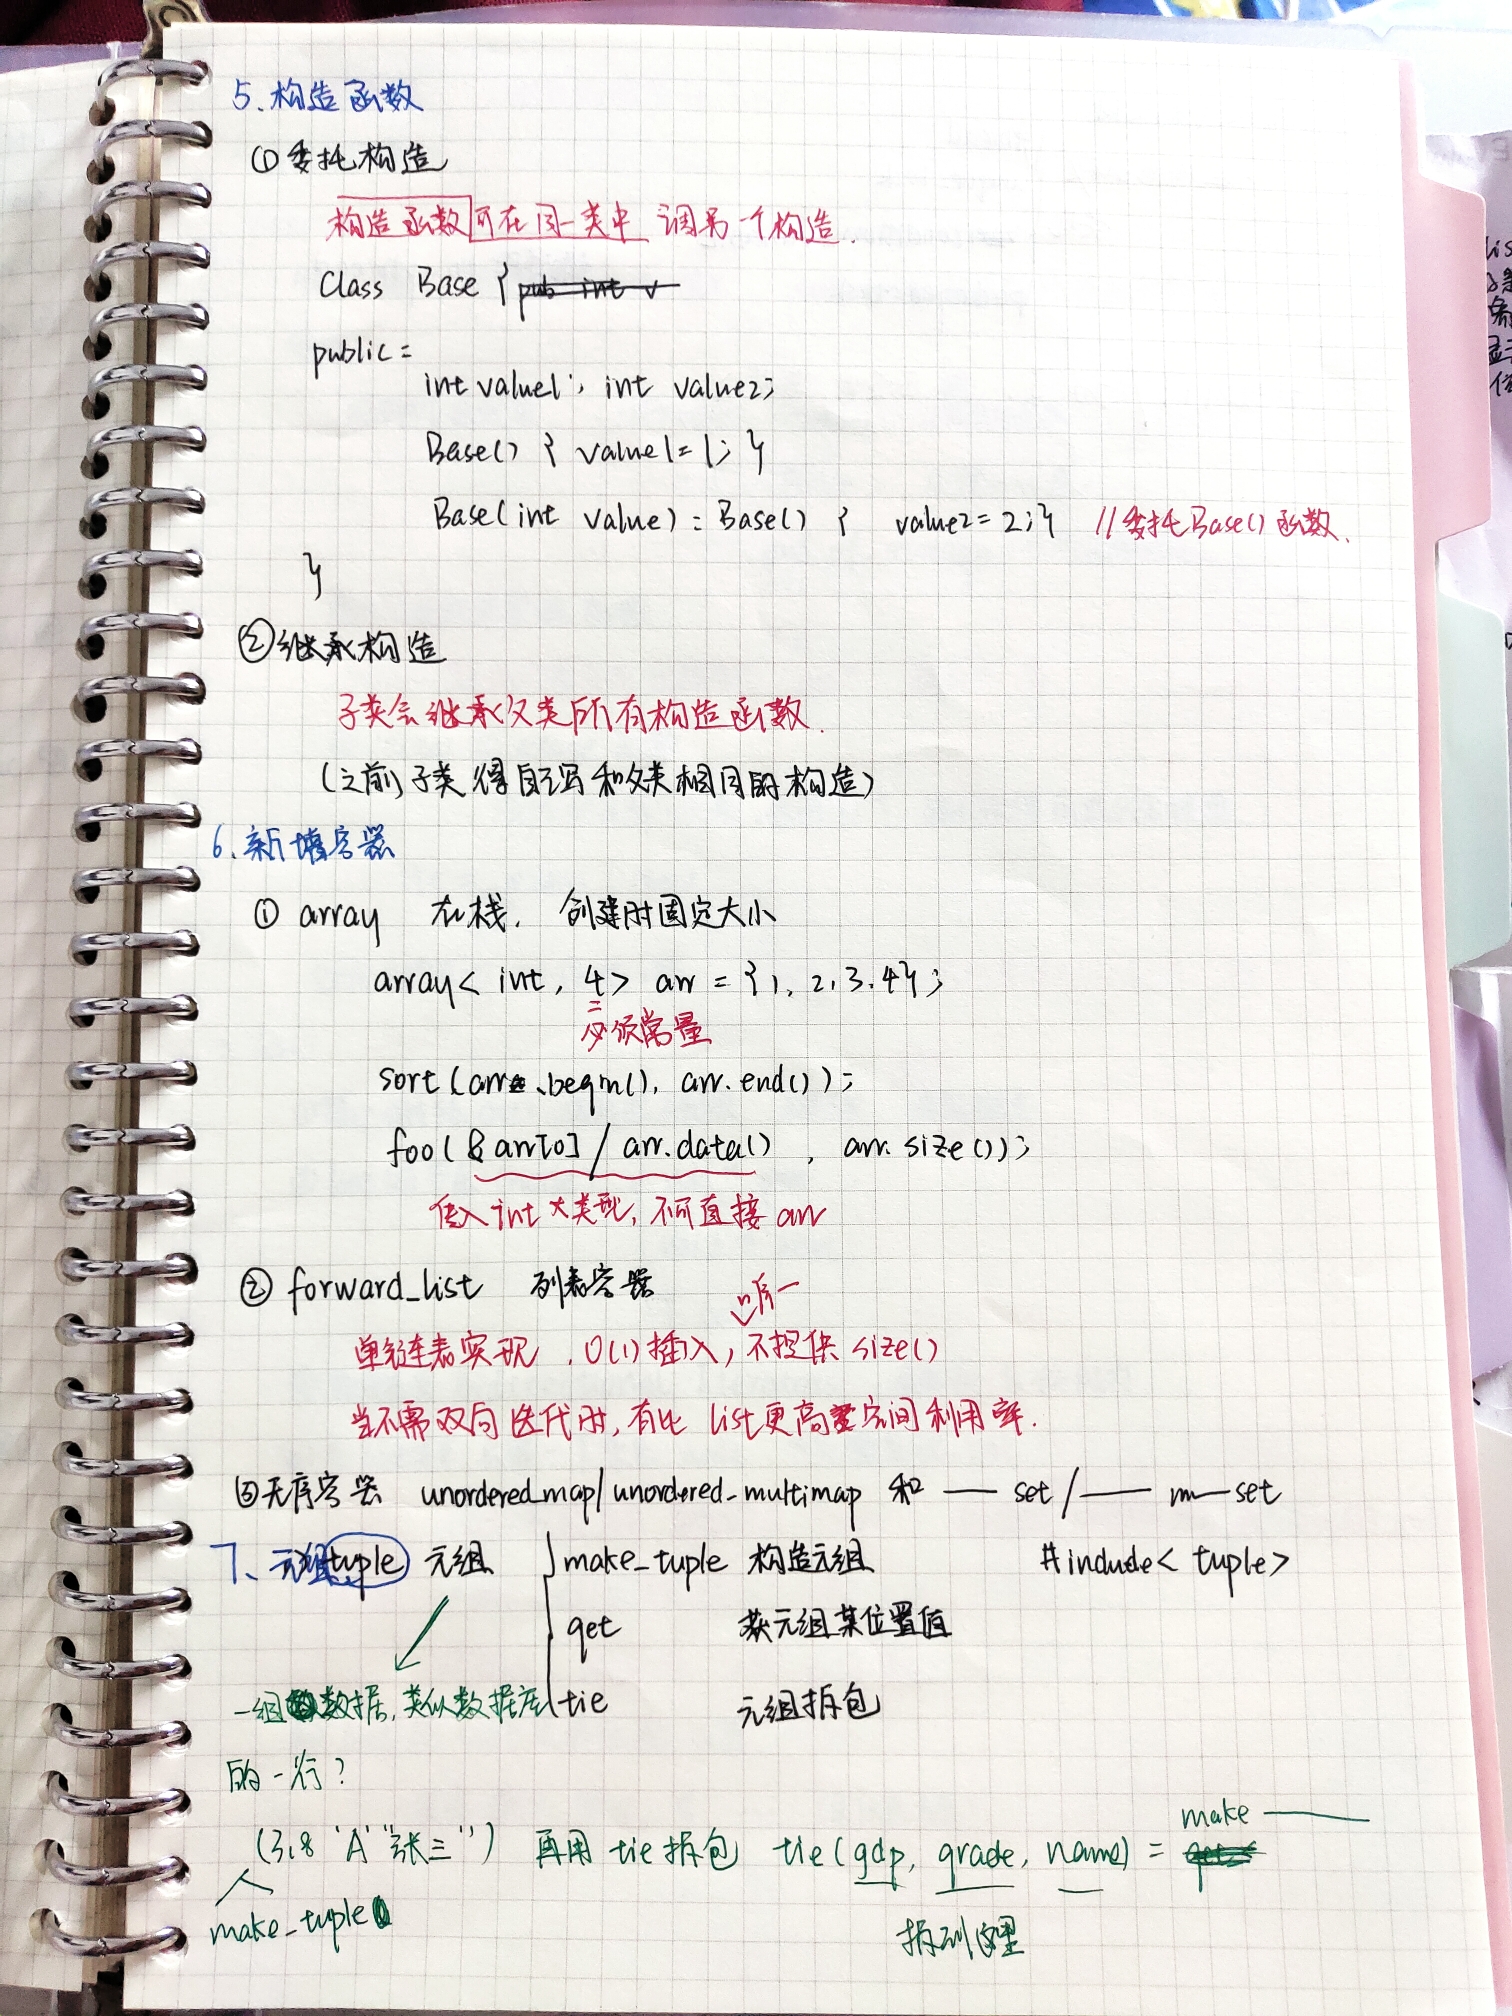 5、构造函数
① 委托构造
构造函数可在同一类中 调另一个构造.
Class Base {
public:
int value1; int value2;
Base() { value1=1; }
Base(int value): Base() { value2=2;} //委托Base()函数.
}
② 继承构造
子类会继承父类所有构造函数.
(之前子类得自己写和父类相同的构造)
6、新增容器
① array 在栈, 创建时固定大小
array<int, 4> arr = {1, 2, 3, 4};
必须常量
sort(arr.begin(), arr.end());
foo(&arr[0] / arr.data(), arr.size());
传入int*类型, 不可直接arr
② forward_list 列表容器
唯一
单链表实现, O(1)插入, 不提供size()
当不需双向迭代时, 有比list更高空间利用率.
③无序容器 unordered_map/unordered_multimap 和 —— set/—— m—set
7、tuple 元组 make_tuple 构造元组 #include<tuple>
get 获元组某位置值
一组数据, 类似数据库 tie 元组拆包
的一行?
make ——
(3.8 'A' "张三") 再用tie拆包 tie(gdp, grade, name) =
make_tuple
拆到这里